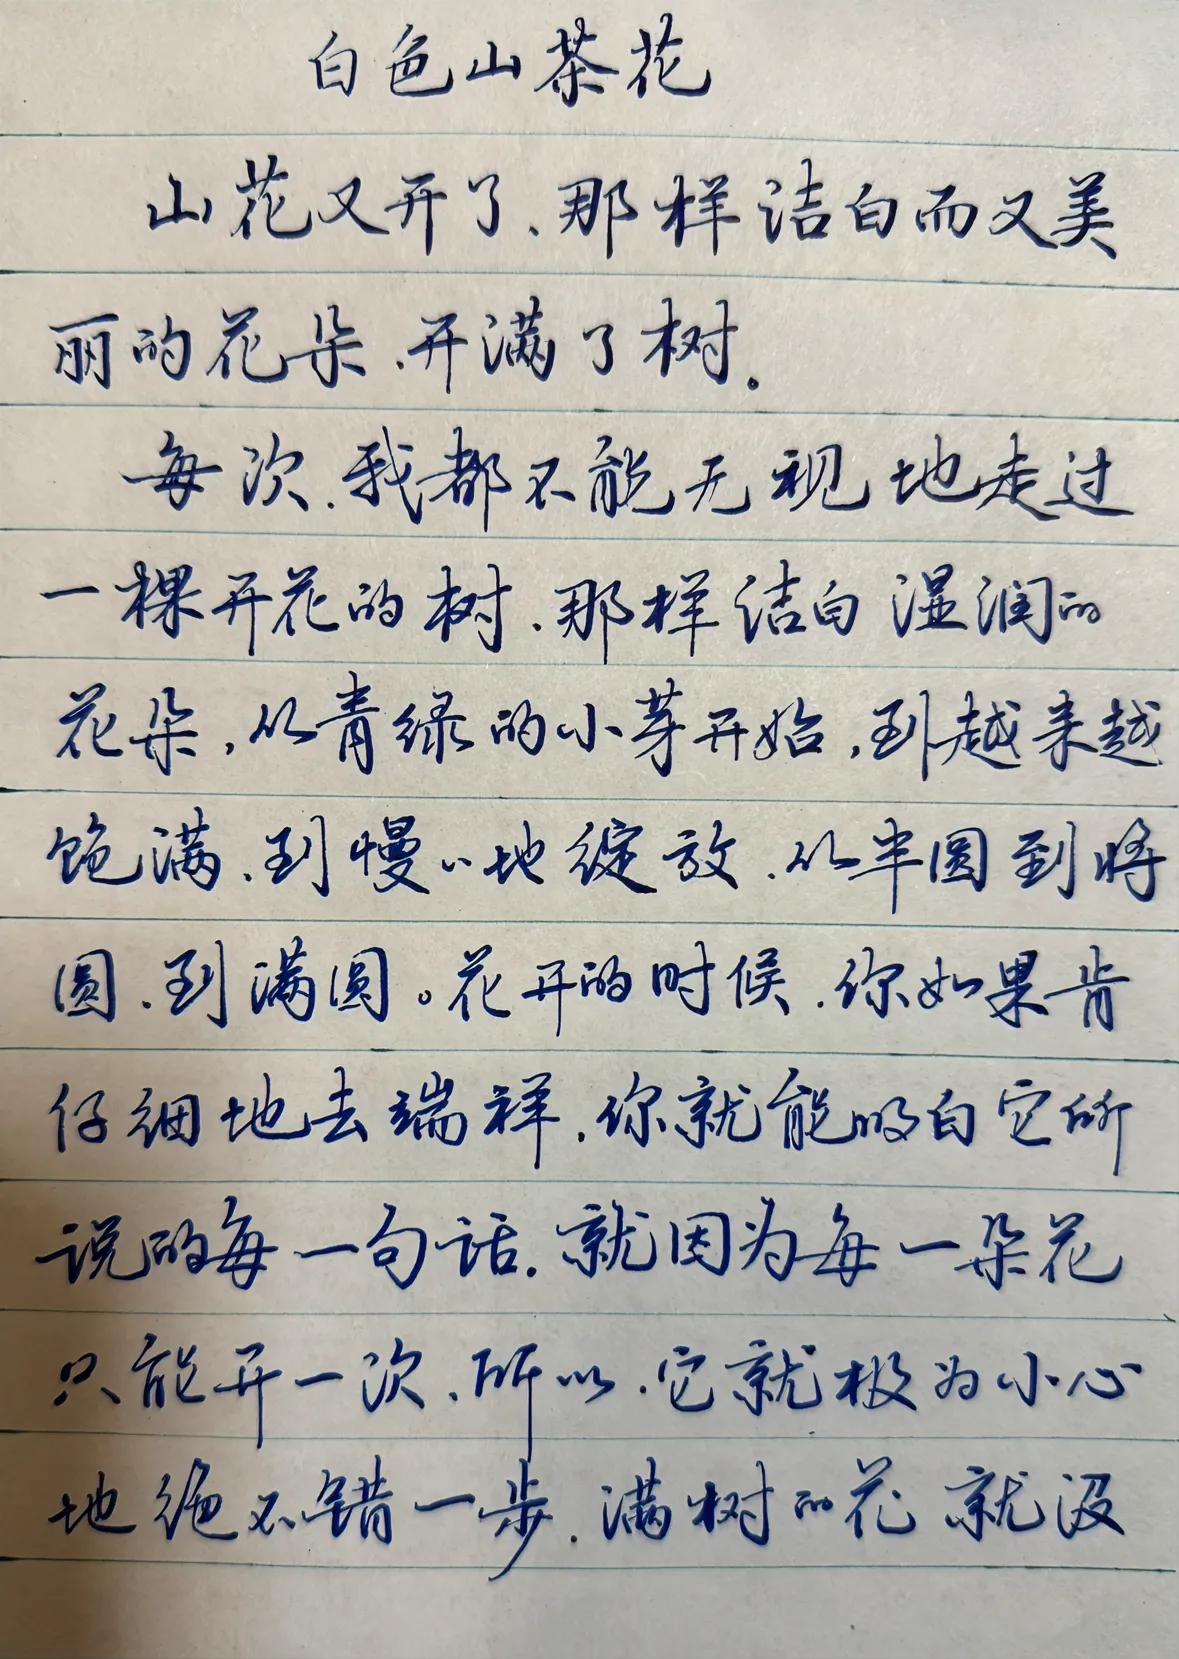 白色山茶花
山花又开了、那样洁白而又美
丽的花朵、开满了树。
每次、我都不能无视地走过
一棵开花的树、那样洁白湿润的
花朵，从青绿的小芽开始，到越来越
饱满、到慢〻地绽放、从半圆到将
圆、到满圆。花开的时候、你如果肯
仔细地去端祥、你就能明白它所
说的每一句话、就因为每一朵花
只能开一次、所以、它就极为小心
地绝不错一步、满树的花就没